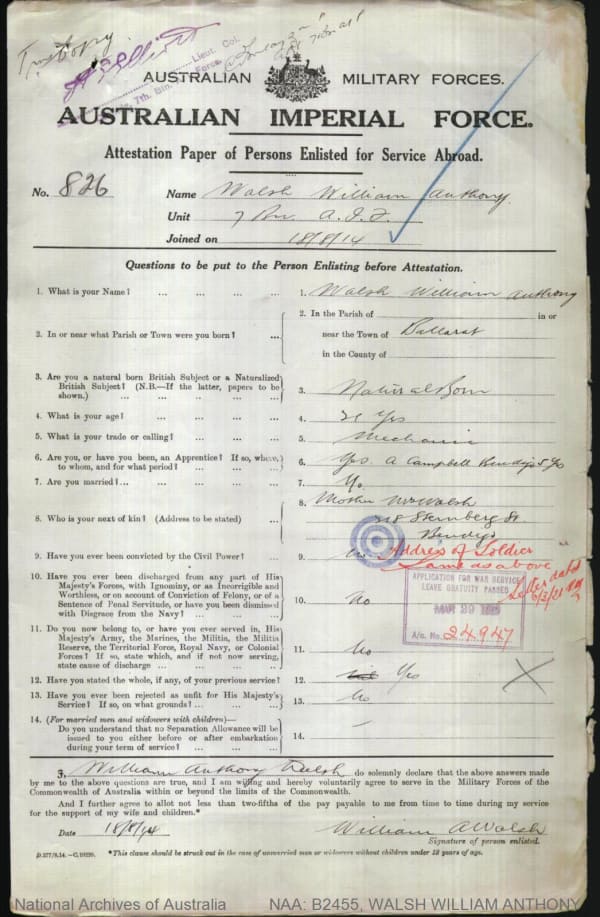 True Copy.
Lieut. Col.
7th. Btn. Force.
AUSTRALIAN MILITARY FORCES.
AUSTRALIAN IMPERIAL FORCE.
Attestation Paper of Persons Enlisted for Service Abroad.
No. 826 Name Walsh William Anthony.
Unit 7 Bn. A.I.F.
Joined on 18/8/14
Questions to be put to the Person Enlisting before Attestation.
1. What is your Name? ... ... ... ... 1. Walsh William Anthony
2. In or near what Parish or Town were you born? ... 2. In the Parish of in or
near the Town of Ballarat
in the County of
3. Are you a natural born British Subject or a Naturalized British Subject? (N.B.—If the latter, papers to be shown.) ... ... ... ... 3. Natural Born
4. What is your age? ... ... ... ... 4. 21 Yrs
5. What is your trade or calling? ... ... ... 5. Mechanic
6. Are you, or have you been, an Apprentice? If so, where, to whom, and for what period? ... ... ... 6. Yes. A Campbell Bendigo 5 Yrs
7. Are you married? ... ... ... ... 7. No.
8. Who is your next of kin? (Address to be stated) ... 8. Mother Mrs Walsh
Sternberg St.
Bendigo
9. Have you ever been convicted by the Civil Power? ... 9. No
Address of Soldier
Same as above
Letter dated
APPLICATION FOR WAR SERVICE
LEAVE GRATUITY PASSED
A/c. No. 24,947
10. Have you ever been discharged from any part of His Majesty's Forces, with Ignominy, or as Incorrigible and Worthless, or on account of Conviction of Felony, or of a Sentence of Penal Servitude, or have you been dismissed with Disgrace from the Navy? ... ... ... 10. No
11. Do you now belong to, or have you ever served in, His Majesty's Army, the Marines, the Militia, the Militia Reserve, the Territorial Force, Royal Navy, or Colonial Forces? If so, state which, and if not now serving, state cause of discharge ... ... ... ... 11. No
12. Have you stated the whole, if any, of your previous service? 12. Yes
13. Have you ever been rejected as unfit for His Majesty's Service? If so, on what grounds? ... ... ... 13. No
14. (For married men and widowers with children)—
Do you understand that no Separation Allowance will be issued to you either before or after embarkation during your term of service? ... ... ... 14. —
I, William Anthony Walsh do solemnly declare that the above answers made
by me to the above questions are true, and I am willing and hereby voluntarily agree to serve in the Military Forces of the
Commonwealth of Australia within or beyond the limits of the Commonwealth.
And I further agree to allot not less than two-fifths of the pay payable to me from time to time during my service
for the support of my wife and children.*
Date 18/8/14 William A Walsh
Signature of person enlisted.
*This clause should be struck out in the case of unmarried men or widowers without children under 18 years of age.
National Archives of Australia NAA: B2455, WALSH WILLIAM ANTHONY